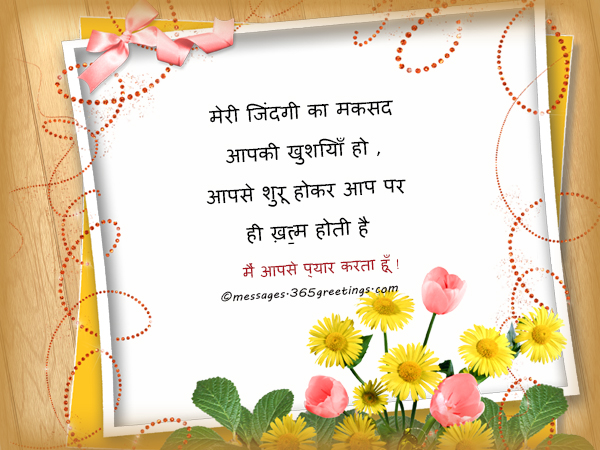 मेरी जिंदगी का मकसद
आपकी खुशयिाँ हो ,
आपसे शुरू होकर आप पर
ही ख़त्म होती है
मैं आपसे प्यार करता हूँ !
©messages.365greetings.com